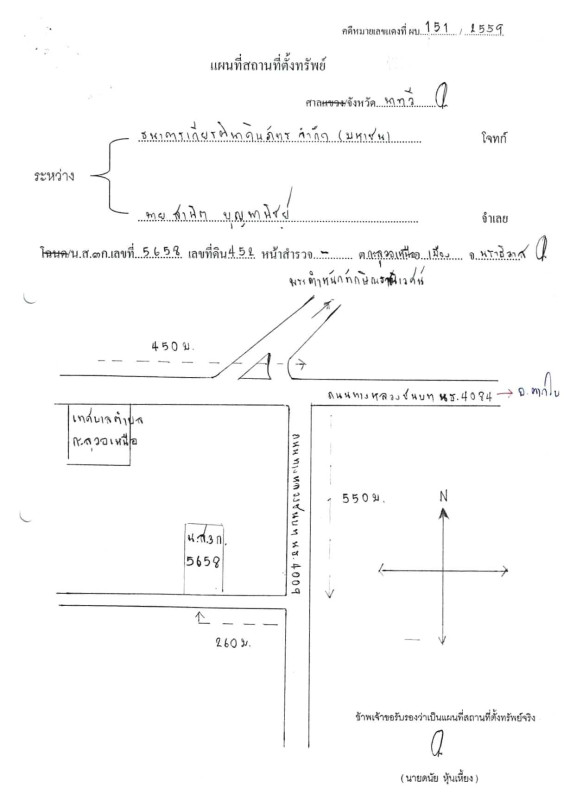 คดีหมายเลขแดงที่ ผบ. 151 / 2559
แผนที่สถานที่ตั้งทรัพย์
ศาลแขวง/จังหวัด นาทวี
ธนาคารเกียรตินาคินภัทร จำกัด (มหาชน) โจทก์
ระหว่าง
นาย สานิต บุญพานิชย์ จำเลย
โฉนด/น.ส.๓ก.เลขที่ 5658 เลขที่ดิน 452 หน้าสำรวจ - ต.กะลุวอเหนือ เมือง จ. นราธิวาส
พระตำหนักทักษิณราชนิเวศน์
450 ม.
ถนนทางหลวงชนบท นธ.4084 → อ.ตากใบ
เทศบาลตำบล
กะลุวอเหนือ
ถนนทางหลวงชนบท นธ.4009
550 ม.
N
น.ส.3ก.
5658
260 ม.
ข้าพเจ้าขอรับรองว่าเป็นแผนที่สถานที่ตั้งทรัพย์จริง
(นายดนัย หุ้นเหี้ยง)